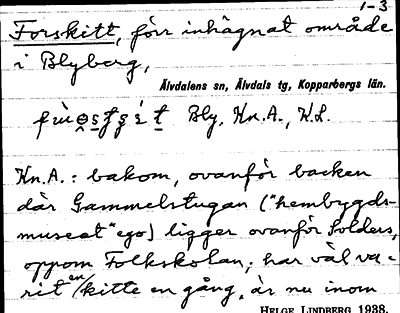 1-3
Forskitt, förr inhägnat område
i Blyberg,
Älvdalens sn, Älvdals tg, Kopparbergs län.
Bly, Kn.A., K.L.
Kn.A.: bakom, ovanför backen
där Gammelstugan ("hembygds-
museet" ego) ligger ovanför Solders,
oppom Folkskolan; har väl va-
rit en kitte en gång, är nu inom
HELGE LINDBERG 1938.